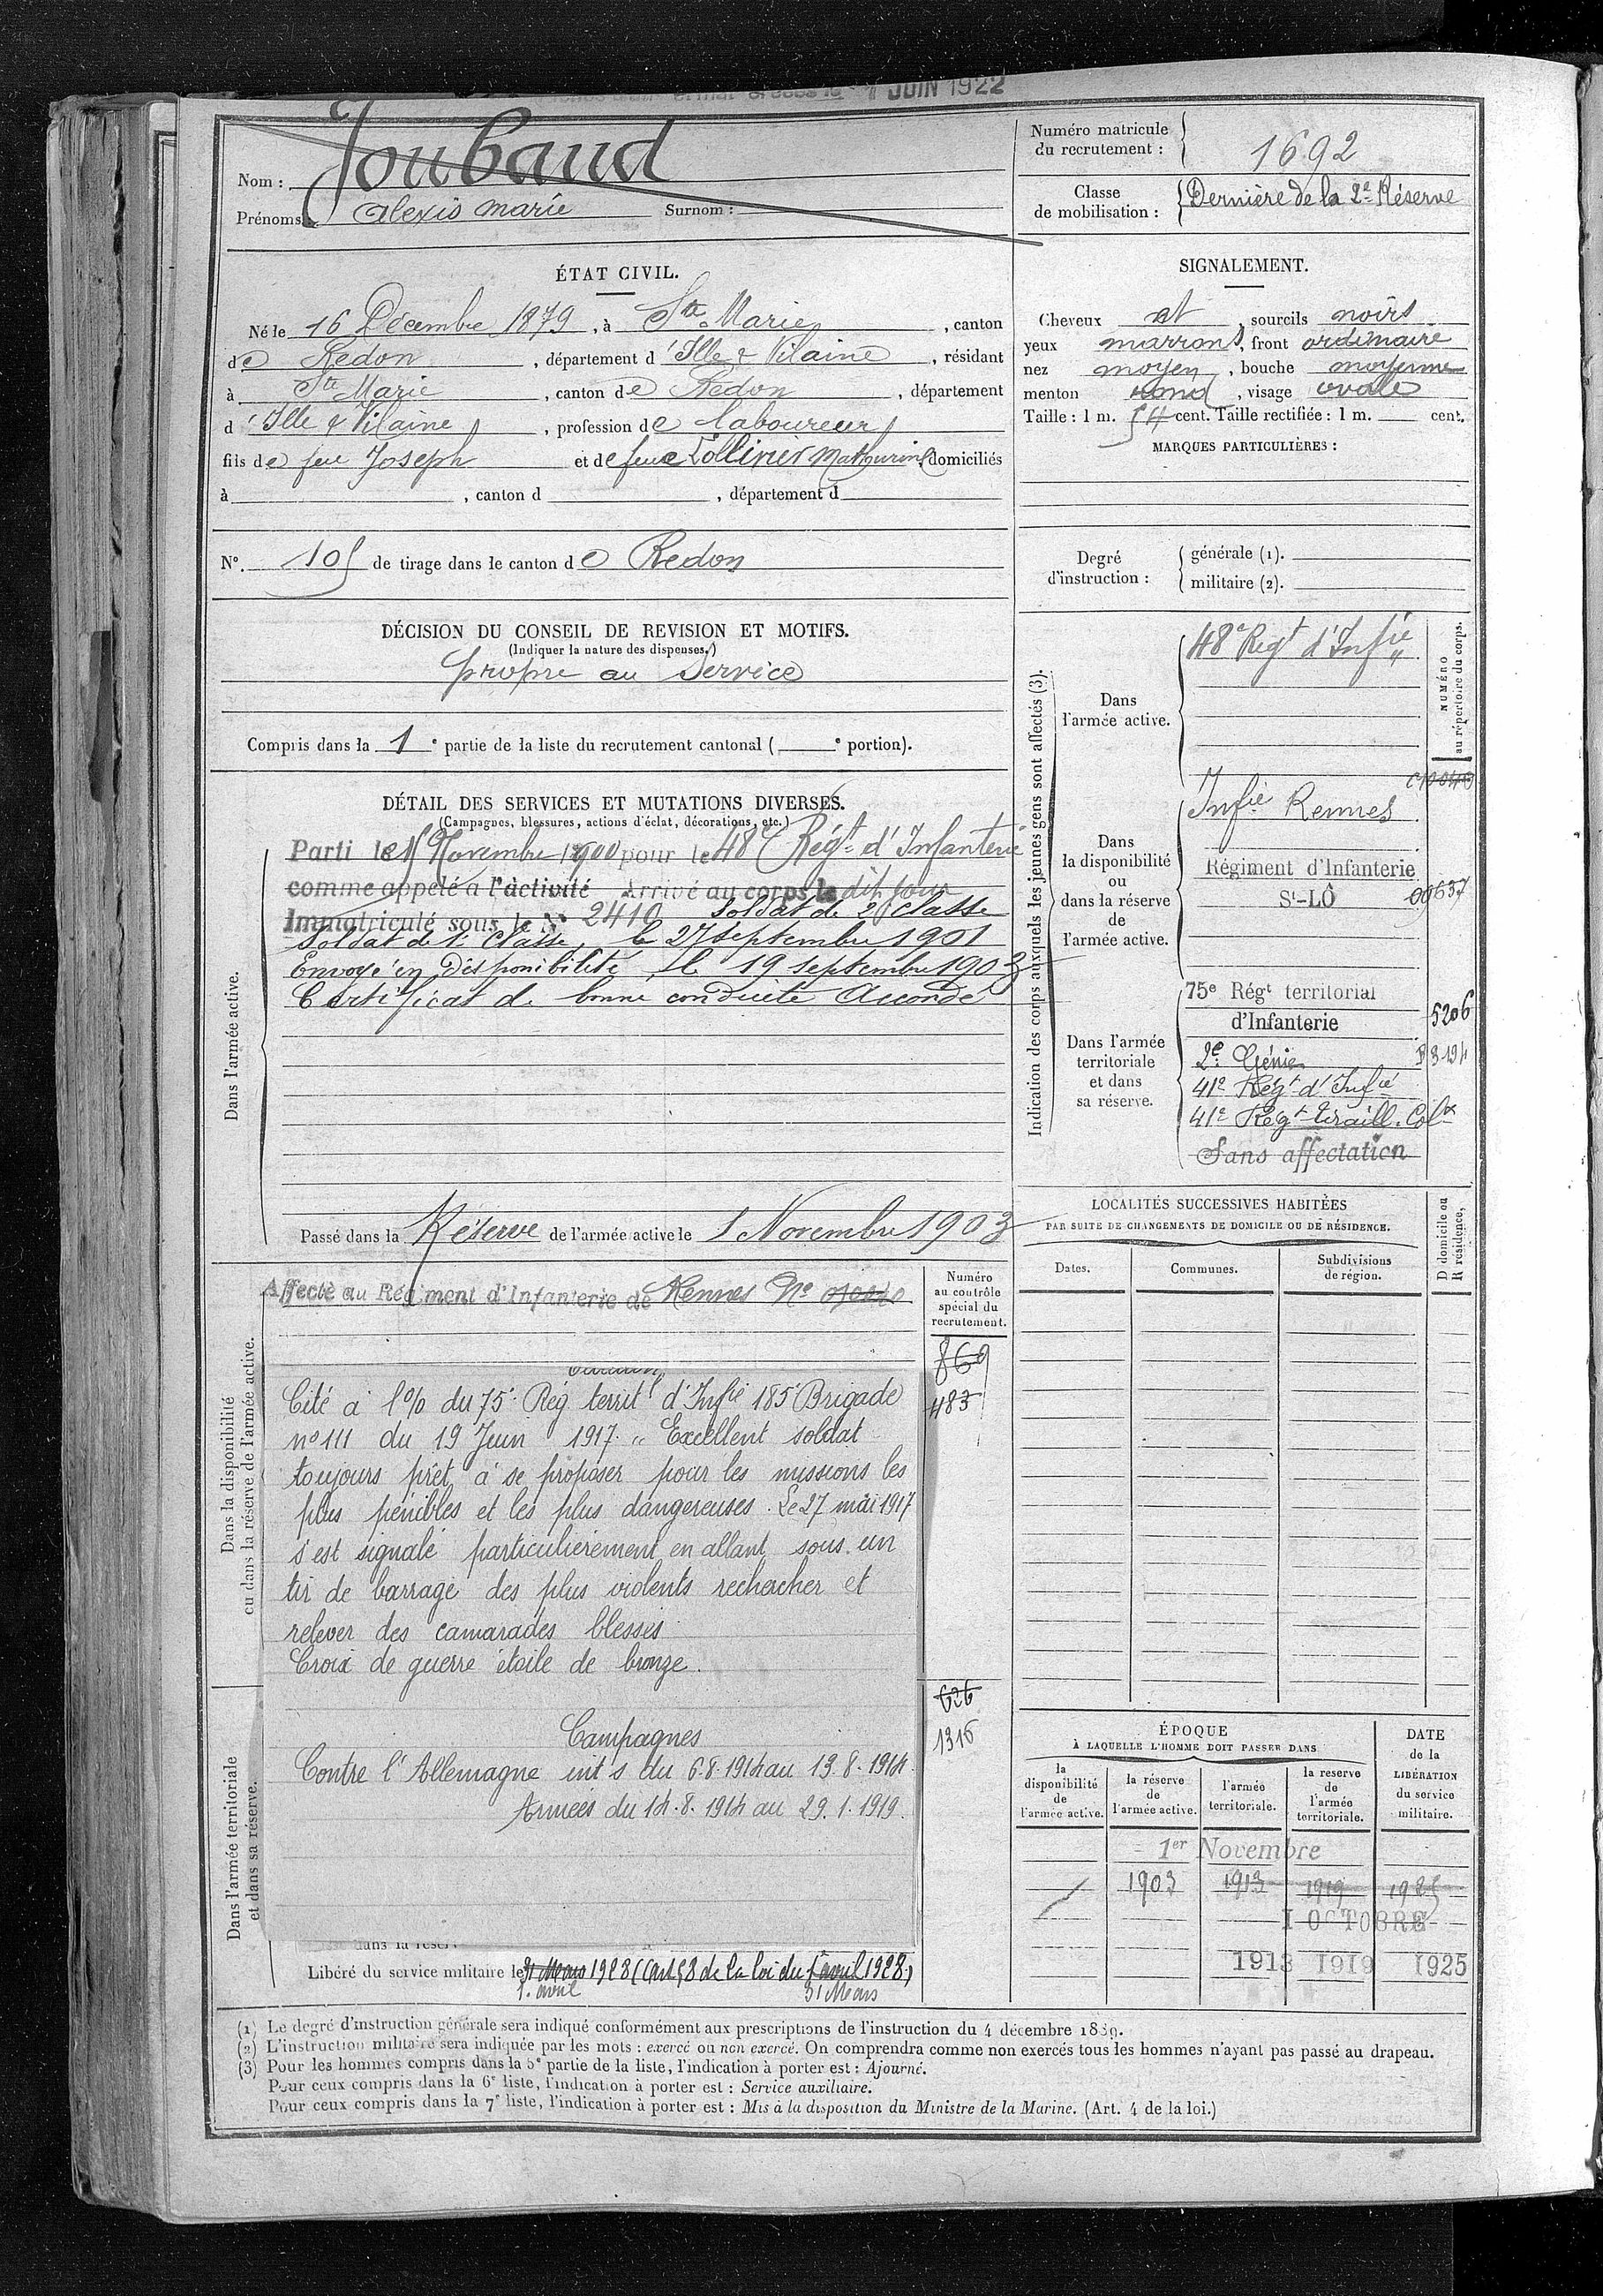 JUIN 1922
Nom : Joubaud
Prénoms Alexis Marie Surnom :
ÉTAT CIVIL.
Né le 16 Décembre 1879, à Ste Marie, canton
de Redon, département d'Ille & Vilaine, résidant
à Ste Marie, canton de Redon, département
d'Ille & Vilaine, profession de laboureur
fils de feu Joseph et de feue domiciliés
à , canton d , département d
N°. 105 de tirage dans le canton de Redon
DÉCISION DU CONSEIL DE REVISION ET MOTIFS.
(Indiquer la nature des dispenses.)
propre au service
Compris dans la 1e partie de la liste du recrutement cantonal ( e portion).
DÉTAIL DES SERVICES ET MUTATIONS DIVERSES.
(Campagnes, blessures, actions d'éclat, décorations, etc.)
Dans l'armée active.
Parti le Novembre 1900 pour le 48e Régt d'Infanterie
comme appelé à l'activité Arrivé au corps le dit jour
Immatriculé sous le N° 2410 Soldat de 2e classe
Soldat de 1e classe, le 27 septembre 1901
Envoyé en disponibilité le 19 septembre 1903
Certificat de bonne conduite Accordé
Passé dans la Réserve de l'armée active le 1 Novembre 1903
Dans la disponibilité
ou dans la réserve de l'armée active.
Affecté au Régiment d'Infanterie de Rennes No
Numéro
au contrôle
spécial du
recrutement.
869
483
Cité à l'o/o du 75e Rég territl d'Infie 185e Brigade
n° 111 du 19 Juin 1917. "Excellent soldat
toujours prêt à se proposer pour les missions les
plus pénibles et les plus dangereuses. Le 27 mai 1917
s'est signalé particulièrement en allant sous un
tir de barrage des plus violents rechercher et
relever des camarades blessés
Croix de guerre étoile de bronze.
Dans l'armée territoriale
et dans sa réserve.
626
1316
Campagnes
Contre l'Allemagne int's du 6.8.1914 au 13.8.1914.
Armées du 14.8.1914 au 29.1.1919.
Libéré du service militaire le 31 Mars 1928 (Art 58 de la loi du 1 avril 1928)
1. avril 31 Mars
Numéro matricule
du recrutement : 1692
Classe
de mobilisation : Dernière de la 2e Réserve
SIGNALEMENT.
Cheveux et , sourcils noirs
yeux marrons, front ordinaire
nez moyen, bouche moyenne
menton rond, visage ovale
Taille : 1 m. 54 cent. Taille rectifiée : 1 m. cent.
MARQUES PARTICULIÈRES :
Degré
d'instruction :
générale (1).
militaire (2).
Indication des corps auxquels les jeunes gens sont affectés (3).
NUMÉRO
au répertoire du corps.
Dans
l'armée active.
48e Regt d'Infie
Dans
la disponibilité
ou
dans la réserve
de
l'armée active.
Infie Rennes
Régiment d'Infanterie
St-LÔ 09637
Dans l'armée
territoriale
et dans
sa réserve.
75e Régt territorial
d'Infanterie 5206
2e Génie
41e Régt d'Infie
41e Régt Tiraill. Colx
Sans affectation
LOCALITÉS SUCCESSIVES HABITÉES
PAR SUITE DE CHANGEMENTS DE DOMICILE OU DE RÉSIDENCE.
Dates.
Communes.
Subdivisions
de région.
D domicile ou
R résidence,
ÉPOQUE
À LAQUELLE L'HOMME DOIT PASSER DANS
la
disponibilité
de
l'armée active.
la réserve
de
l'armée active.
l'armée
territoriale.
la reserve
de
l'armée
territoriale.
DATE
de la
LIBÉRATION
du service
militaire.
1er Novembre
1903 1913 1919 1925
1 OCTOBRE
1913 1919 1925
(1) Le degré d'instruction générale sera indiqué conformément aux prescriptions de l'instruction du 4 décembre 1889.
(2) L'instruction militaire sera indiquée par les mots : exercé ou non exercé. On comprendra comme non exercés tous les hommes n'ayant pas passé au drapeau.
(3) Pour les hommes compris dans la 5e partie de la liste, l'indication à porter est : Ajourné.
Pour ceux compris dans la 6e liste, l'indication à porter est : Service auxiliaire.
Pour ceux compris dans la 7e liste, l'indication à porter est : Mis à la disposition du Ministre de la Marine. (Art. 4 de la loi.)